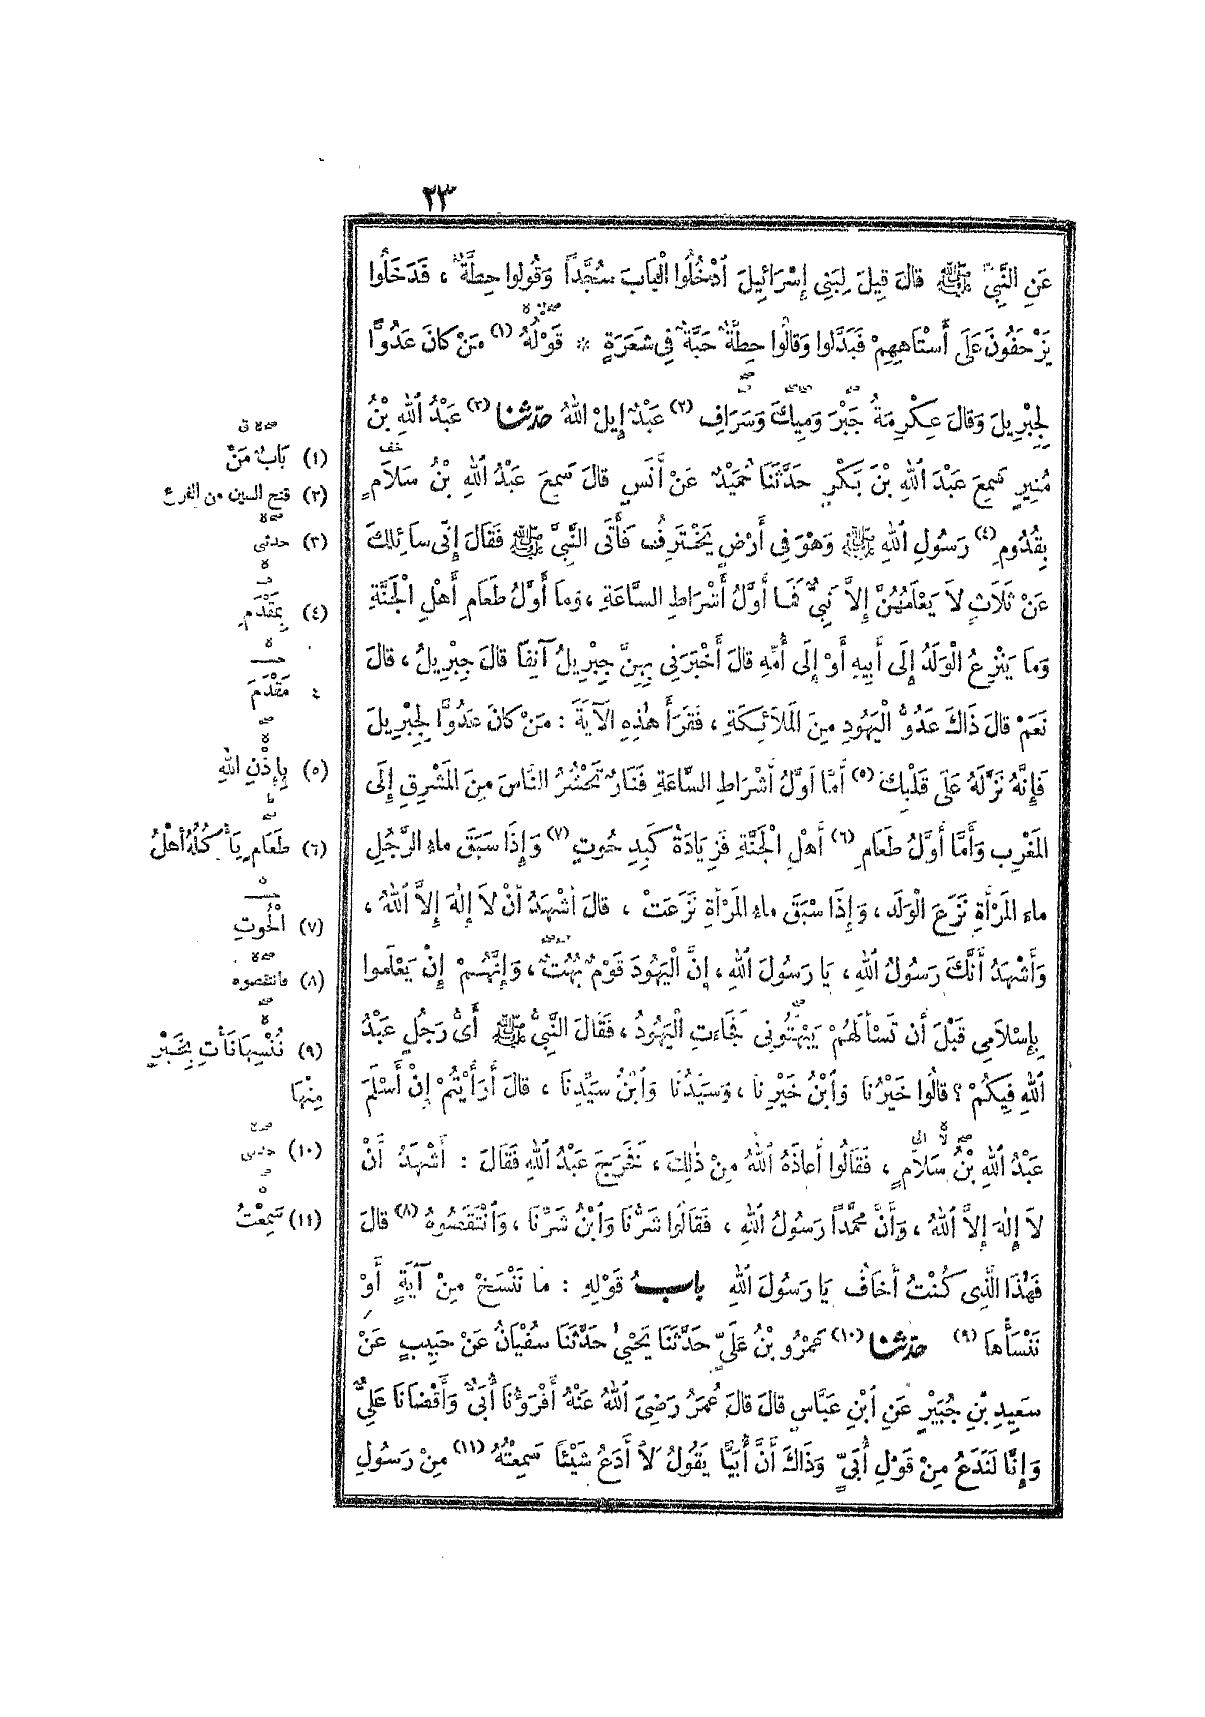 ٢٣
عَنِ النَّبِيِّ ﷺ قَالَ قِيلَ لِبَنِي إِسْرَائِيلَ ٱدْخُلُوا الْبَابَ سُجَّدًا وَقُولُوا حِطَّةٌ ، فَدَخَلُوا
يَزْحَفُونَ عَلَى أَسْتَاهِهِمْ فَبَدَّلُوا وَقَالُوا حِطَّةٌ حَبَّةٌ فِي شَعَرَةٍ * قَوْلُهُ (١) مَنْ كَانَ عَدُوًّا
لِجِبْرِيلَ وَقَالَ عِكْرِمَةُ جَبْرَ وَمِيكَ وَسَرَافِ (٢) عَبْدٌ إِيلْ اللهُ حدّثنا (٣) عَبْدُ ٱللهِ بْنُ
مُنِيرٍ سَمِعَ عَبْدَ ٱللهِ بْنَ بَكْرٍ حَدَّثَنَا حُمَيْدٌ عَنْ أَنَسٍ قَالَ سَمِعَ عَبْدُ ٱللهِ بْنُ سَلَامٍ
بِقُدُومِ (٤) رَسُولِ ٱللهِ ﷺ وَهْوَ فِي أَرْضٍ يَخْتَرِفُ فَأَتَى النَّبِيَّ ﷺ فَقَالَ إِنِّي سَائِلُكَ
عَنْ ثَلَاثٍ لَا يَعْلَمُهُنَّ إِلَّا نَبِيٌّ فَمَا أَوَّلُ أَشْرَاطِ السَّاعَةِ ، وَمَا أَوَّلُ طَعَامِ أَهْلِ الْجَنَّةِ
وَمَا يَنْزِعُ الْوَلَدُ إِلَى أَبِيهِ أَوْ إِلَى أُمِّهِ قَالَ أَخْبَرَنِي بِهِنَّ جِبْرِيلُ آنِفًا قَالَ جِبْرِيلُ ، قَالَ
نَعَمْ قَالَ ذَاكَ عَدُوُّ الْيَهُودِ مِنَ الْمَلَائِكَةِ ، فَقَرَأَ هٰذِهِ الْآيَةَ : مَنْ كَانَ عَدُوًّا لِجِبْرِيلَ
فَإِنَّهُ نَزَّلَهُ عَلَى قَلْبِكَ (٥) أَمَّا أَوَّلُ أَشْرَاطِ السَّاعَةِ فَنَارٌ تَحْشُرُ النَّاسَ مِنَ الْمَشْرِقِ إِلَى
الْمَغْرِبِ وَأَمَّا أَوَّلُ طَعَامِ (٦) أَهْلِ الْجَنَّةِ فَزِيَادَةُ كَبِدِ حُوتٍ (٧) وَإِذَا سَبَقَ مَاءُ الرَّجُلِ
مَاءَ الْمَرْأَةِ نَزَعَ الْوَلَدَ ، وَإِذَا سَبَقَ مَاءُ الْمَرْأَةِ نَزَعَتْ ، قَالَ أَشْهَدُ أَنْ لَا إِلٰهَ إِلَّا ٱللهُ ،
وَأَشْهَدُ أَنَّكَ رَسُولُ ٱللهِ ، يَا رَسُولَ ٱللهِ ، إِنَّ الْيَهُودَ قَوْمٌ بُهُتٌ ، وَإِنَّهُمْ إِنْ يَعْلَمُوا
بِإِسْلَامِي قَبْلَ أَنْ تَسْأَلَهُمْ يَبْهَتُونِي فَجَاءَتِ الْيَهُودُ ، فَقَالَ النَّبِيُّ ﷺ أَيُّ رَجُلٍ عَبْدُ
ٱللهِ فِيكُمْ ؟ قَالُوا خَيْرُنَا وَٱبْنُ خَيْرِنَا ، وَسَيِّدُنَا وَٱبْنُ سَيِّدِنَا ، قَالَ أَرَأَيْتُمْ إِنْ أَسْلَمَ
عَبْدُ ٱللهِ بْنُ سَلَامٍ ، فَقَالُوا أَعَاذَهُ ٱللهُ مِنْ ذٰلِكَ ، فَخَرَجَ عَبْدُ ٱللهِ فَقَالَ : أَشْهَدُ أَنْ
لَا إِلٰهَ إِلَّا ٱللهُ ، وَأَنَّ مُحَمَّدًا رَسُولُ ٱللهِ ، فَقَالُوا شَرُّنَا وَٱبْنُ شَرِّنَا ، وَٱنْتَقَصُوهُ (٨) قَالَ
فَهٰذَا الَّذِي كُنْتُ أَخَافُ يَا رَسُولَ ٱللهِ بابُ قَوْلِهِ : مَا نَنْسَخْ مِنْ آيَةٍ أَوْ
نَنْسَأْهَا (٩) حدّثنا (١٠) عَمْرُو بْنُ عَلِيٍّ حَدَّثَنَا يَحْيٰى حَدَّثَنَا سُفْيَانُ عَنْ حَبِيبٍ عَنْ
سَعِيدِ بْنِ جُبَيْرٍ عَنِ ٱبْنِ عَبَّاسٍ قَالَ قَالَ عُمَرُ رَضِيَ ٱللهُ عَنْهُ أَقْرَؤُنَا أُبَيٌّ وَأَقْضَانَا عَلِيٌّ
وَإِنَّا لَنَدَعُ مِنْ قَوْلِ أُبَيٍّ وَذَاكَ أَنَّ أُبَيًّا يَقُولُ لَا أَدَعُ شَيْئًا سَمِعْتُهُ (١١) مِنْ رَسُولِ
(١) بَابُ مَنْ
(٢) فتح السين من الفرع
(٣) حدثني
(٤) بِمَقْدَمِ
٤ مَقْدَمَ
(٥) بِإِذْنِ اللهِ
(٦) طَعَامٍ يَأْكُلُهُ أَهْلُ
(٧) الْحُوتِ
(٨) فانتقصوه
(٩) نُنْسِهَا نَأْتِ بِخَيْرٍ
مِنْهَا
(١٠) حدثني
(١١) سَمِعْتُ